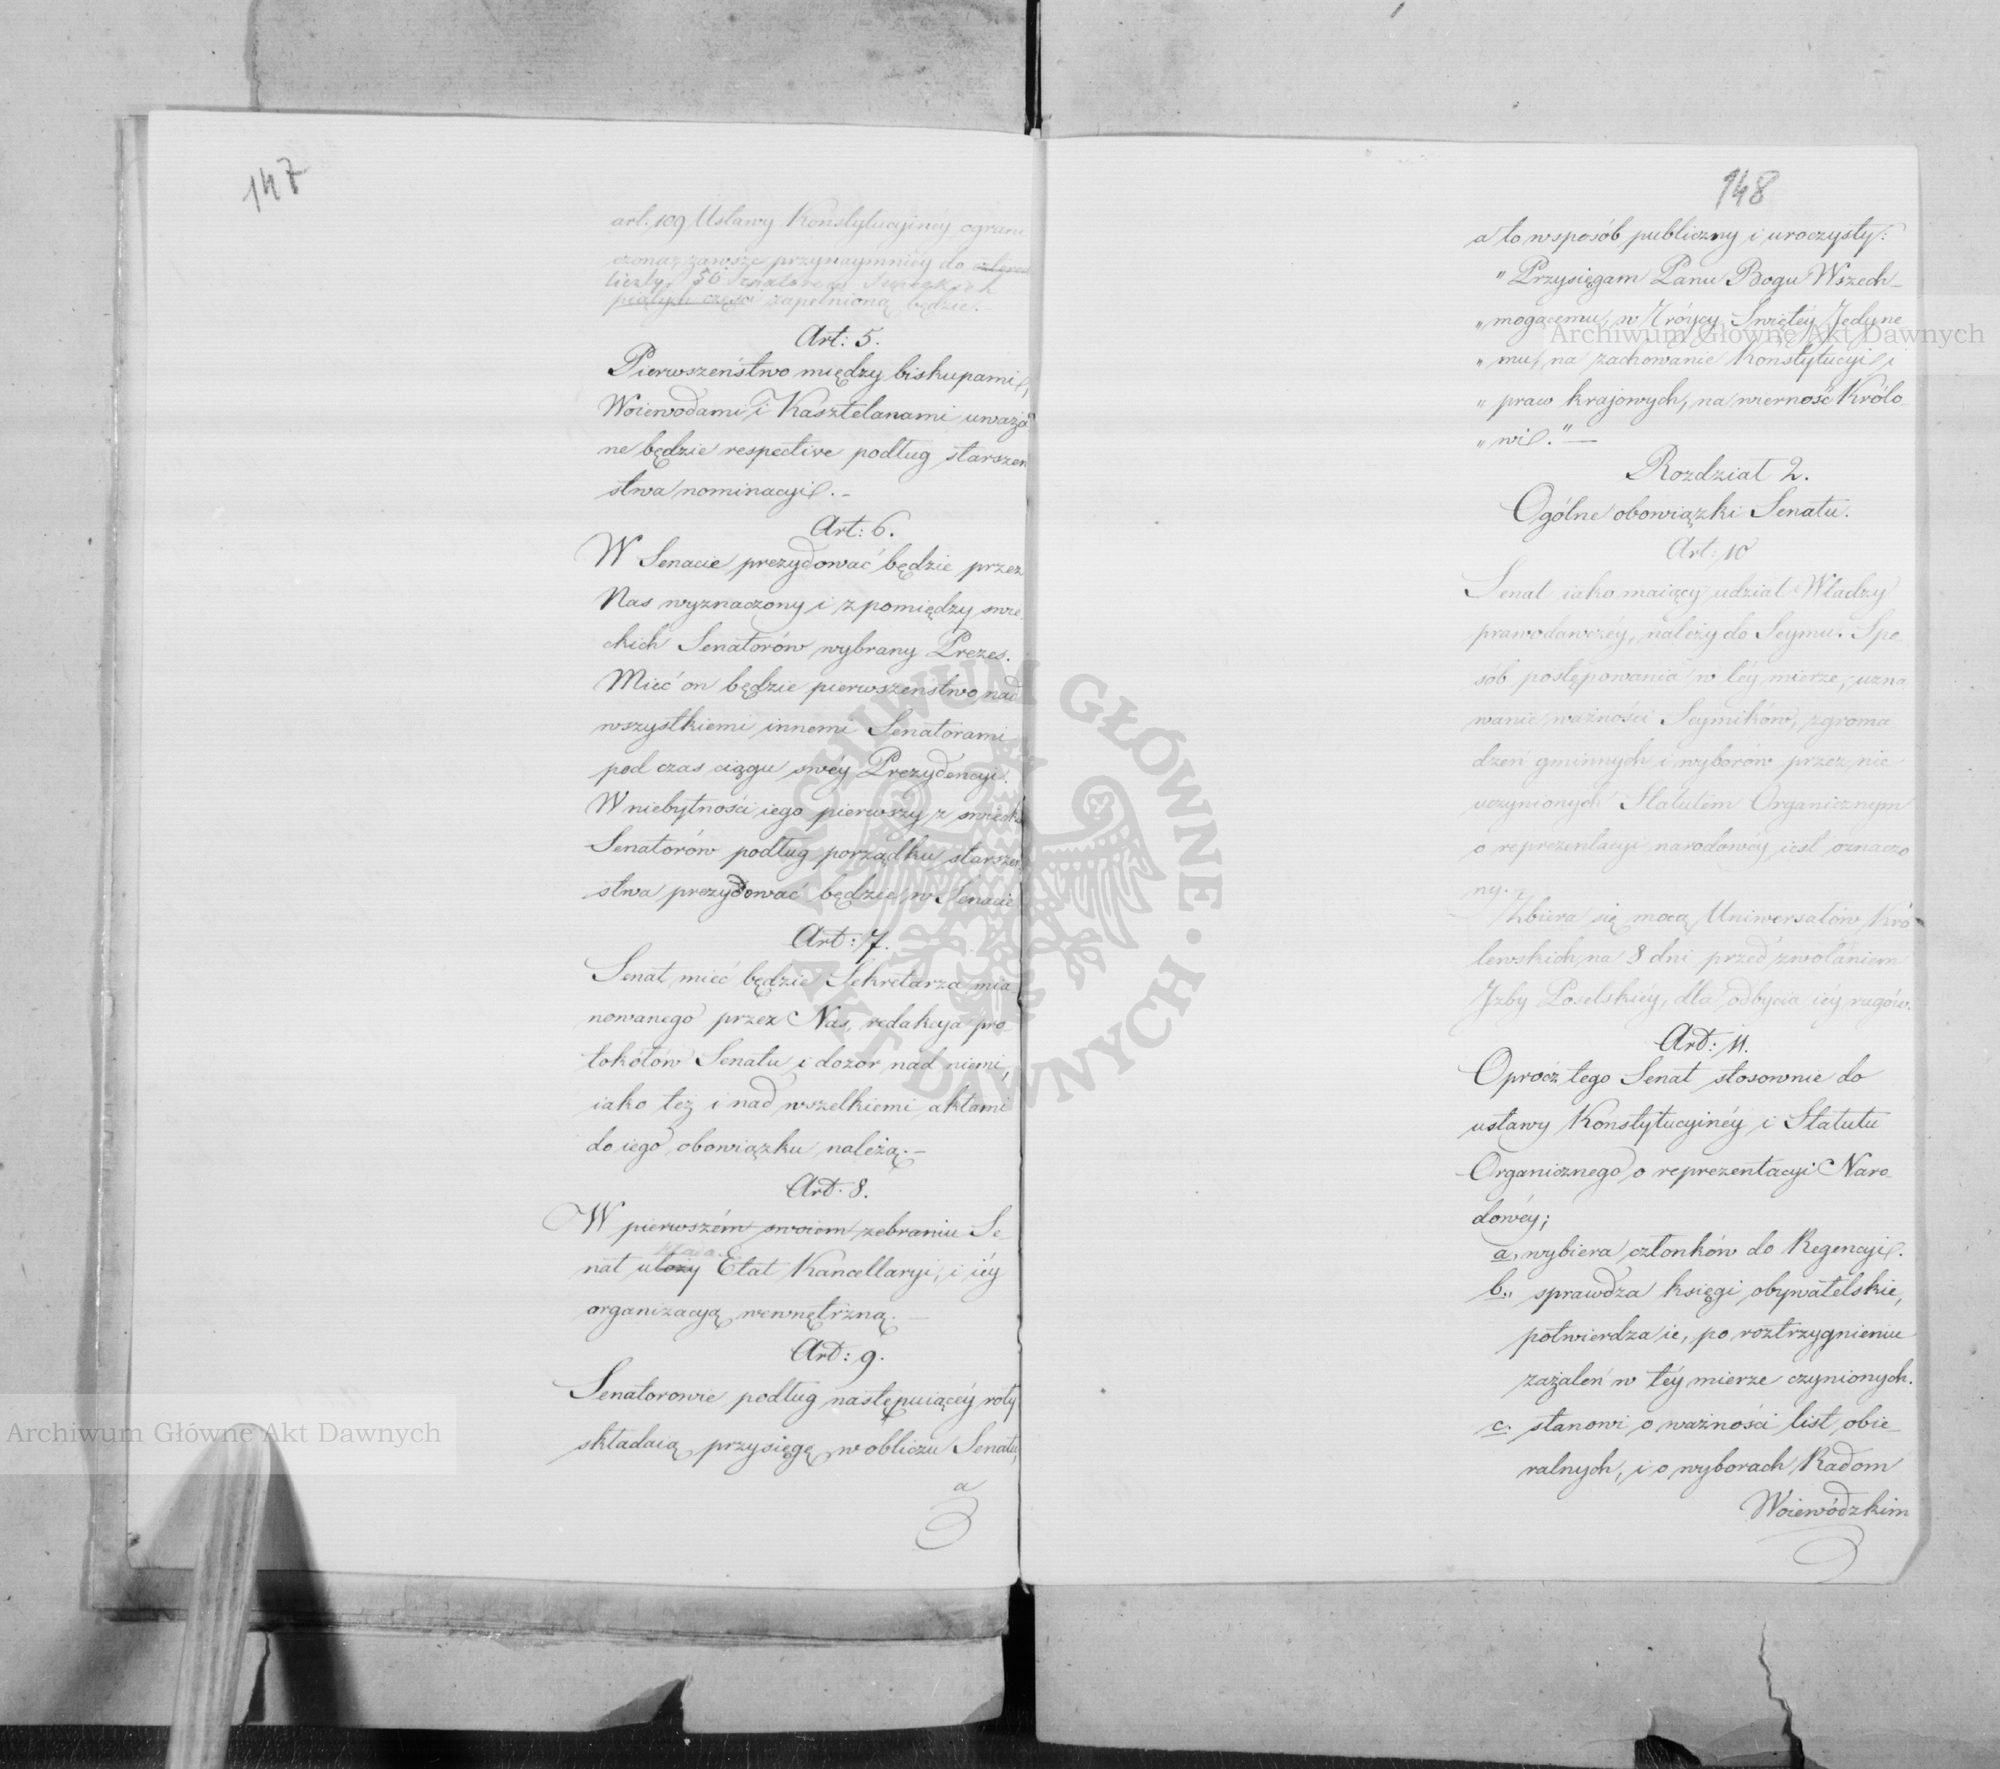 147
art. 109 Ustawy Konstytucyiney ograni
czona, zawsze przynaymniey do cztерех
liczby 50 Senatorow Swieckich
piątych części zapełnioną będzie. –
Art: 5.
Pierwszeństwo między biskupami,
Woiewodami i Kasztelanami uważa
ne będzie respective podług starszeń
stwa nominacyi. –
Art: 6.
W Senacie prezydować będzie przez
Nas wyznaczony i z pomiędzy świe
ckich Senatorów wybrany Prezes.
Mieć on będzie pierwszeństwo nad
wszystkiemi innemi Senatorami
pod czas ciągu swéy Prezydencyi.
W niebytności iego pierwszy z świeckich
Senatorów podług porządku starszeń
stwa prezydować będzie w Senacie
Art: 7.
Senat mieć będzie Sekretarza mia
nowanego przez Nas, redakcya pro
tokołów Senatu i dozor nad niemi,
iako też i nad wszelkiemi aktami
do iego obowiązku należą. –
Art. 8.
W pierwszém swoiem zebraniu Se
nat ułoży Etat Kancellaryi, i iéy
organizacyą wewnętrzną. –
Art: 9.
Senatorowie podług następuiącéy roty
składaią przysięgę w obliczu Senatu,
a
148
a to w sposób publiczny i uroczysty:
"Przysięgam Panu Bogu Wszech–
"mogącemu, w Tróycy Świętéy Jedyne
"mu, na zachowanie Konstytucyi i
"praw krajowych, na wierność Królo–
"wi." —
Rozdział 2.
Ogólne obowiązki Senatu.
Art: 10
Senat iako maiący udział Władzy
prawodawczéy, należy do Seymu. Spo
sób postępowania w téy mierze, uzna
wanie ważności Seymików, zgroma
dzeń gminnych i wyborów przez nie
uczynionych Statutem Organicznym
o reprezentacyi narodowéy iest oznaczo
ny. –
Zbiera się mocą Uniwersałów Kró
lewskich na 8 dni przed zwołaniem
Izby Poselskiéy, dla odbycia iéy rugów.
Art: 11.
Oprocz tego Senat stosownie do
ustawy Konstytucyinéy i Statutu
Organicznego o reprezentacyi Naro–
dowéy;
a, wybiera członków do Regencyi.
b., sprawdza księgi obywatelskie,
potwierdza ie, po roztrzygnieniu
zażaleń w téy mierze czynionych.
c. stanowi o ważności list obie–
ralnych, i o wyborach Radom
Woiewódzkim
Archiwum Główne Akt Dawnych
Archiwum Główne Akt Dawnych
ARCHIWUM GŁÓWNE · AKT DAWNYCH